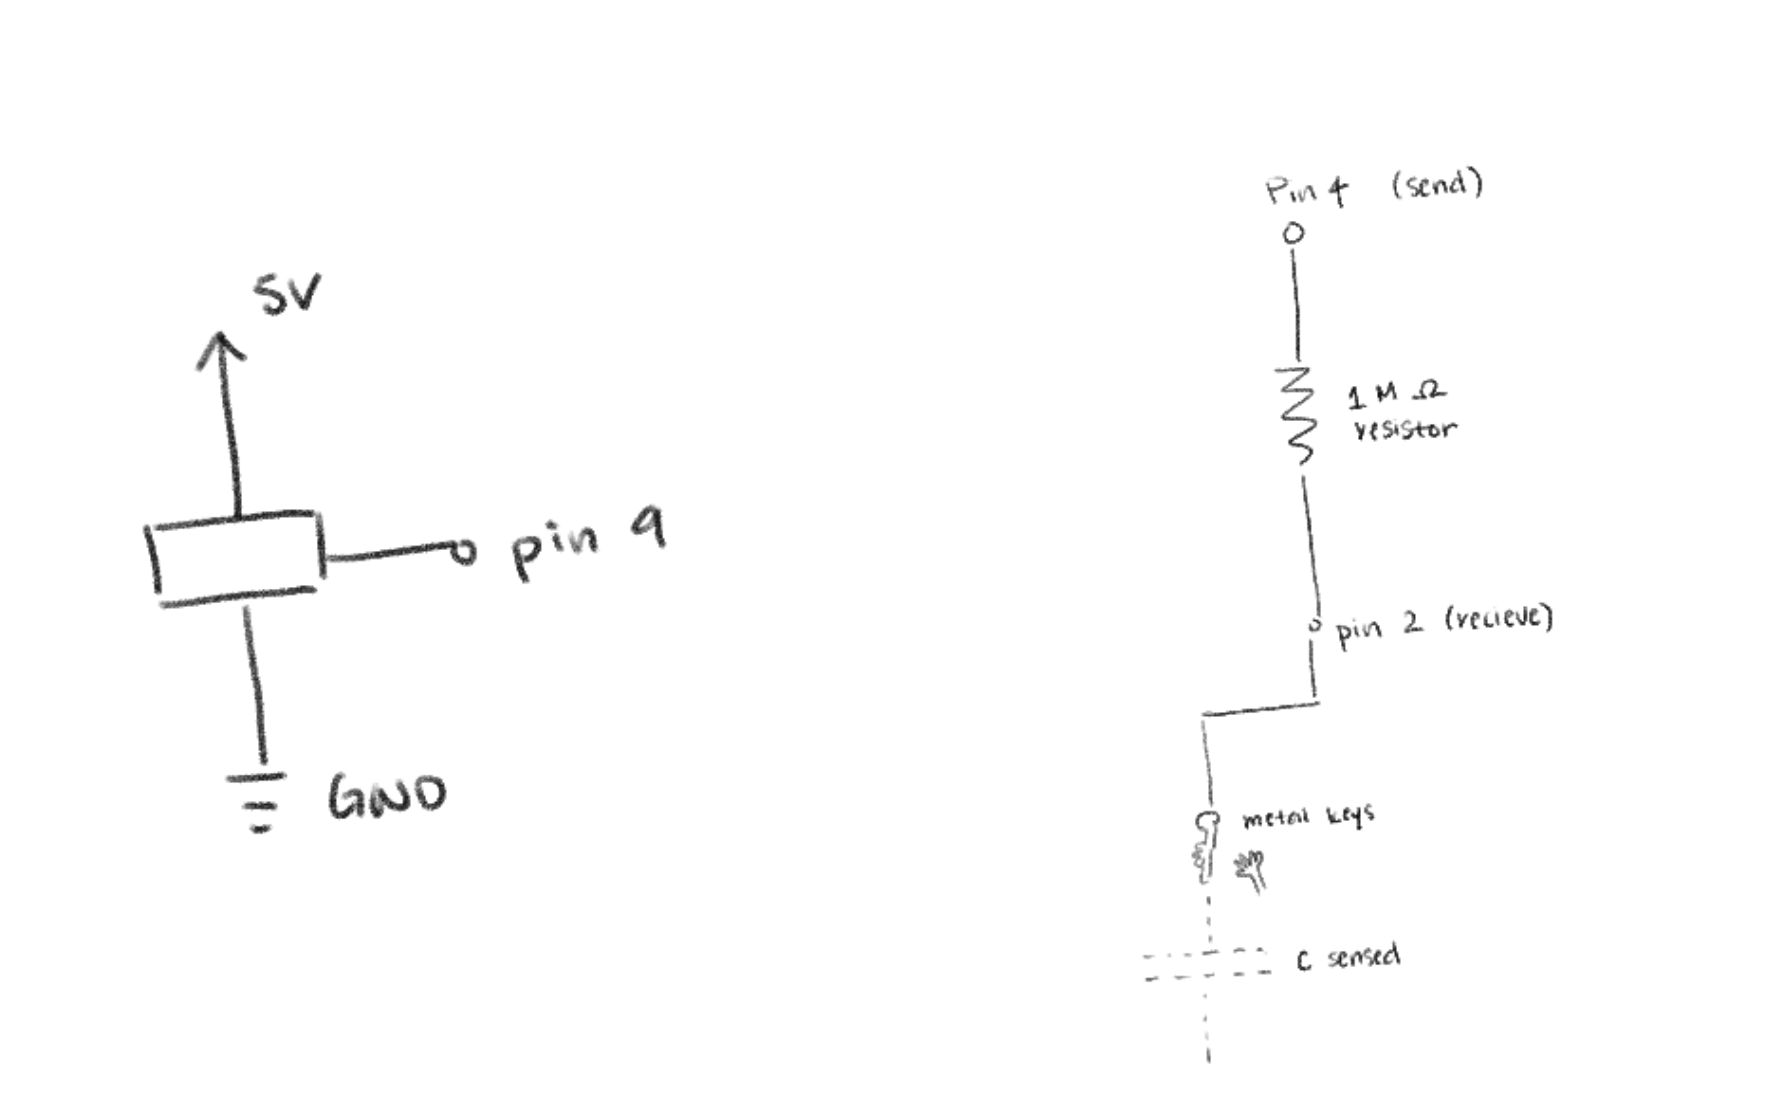 5V
pin 9
GND
Pin 4 (send)
1 M Ω
resistor
pin 2 (recieve)
metal keys
C sensed